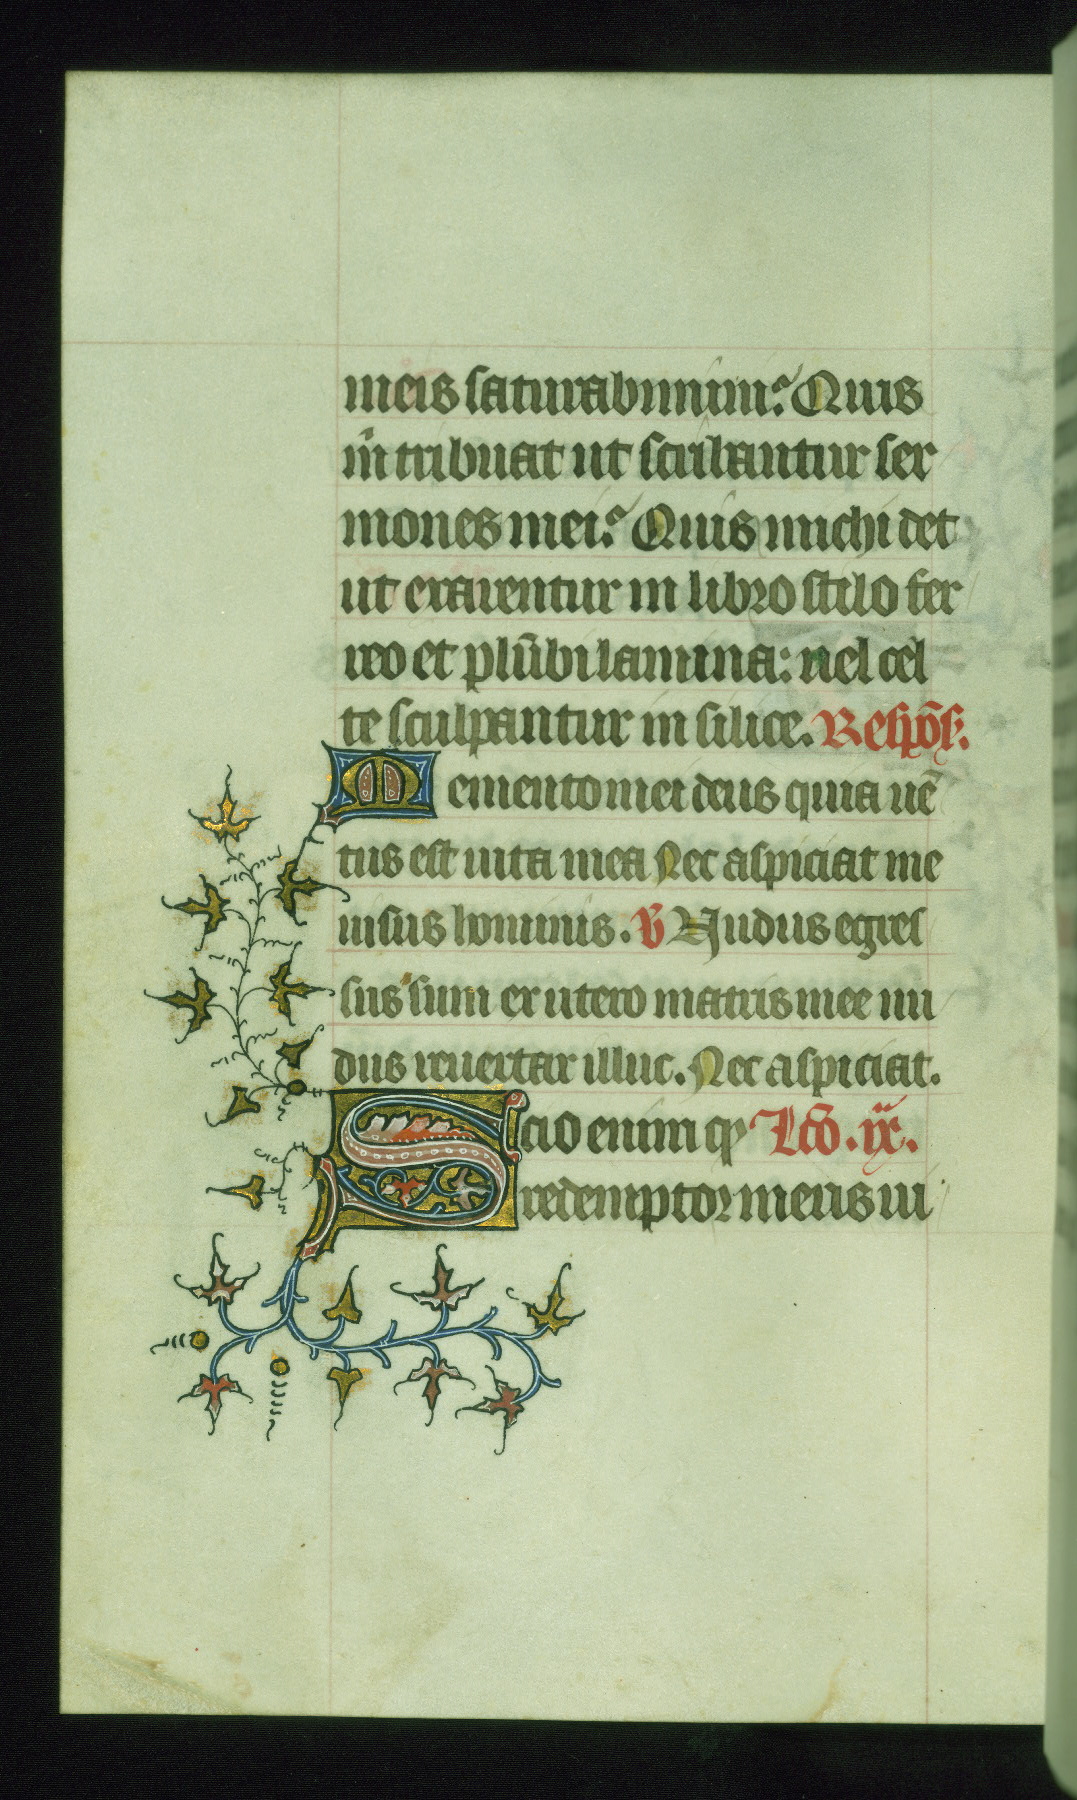 meis saturabimini? Quis
m̅ tribuat ut scribantur ser
mones mei? Quis michi det
ut exarentur in libro stilo fer
reo et plu̅bi lamina: uel cel
te sculpantur in silice. Respo̅s.
Memento mei deus quia ue̅
tus est uita mea Nec aspiciat me
uisus hominis. V̅ Nudus egres
sus sum ex utero matris mee nu
dus reuertar illuc. Nec aspiciat.
Scio enim qͥ Lc̅o. ix.
redemptor meus ui